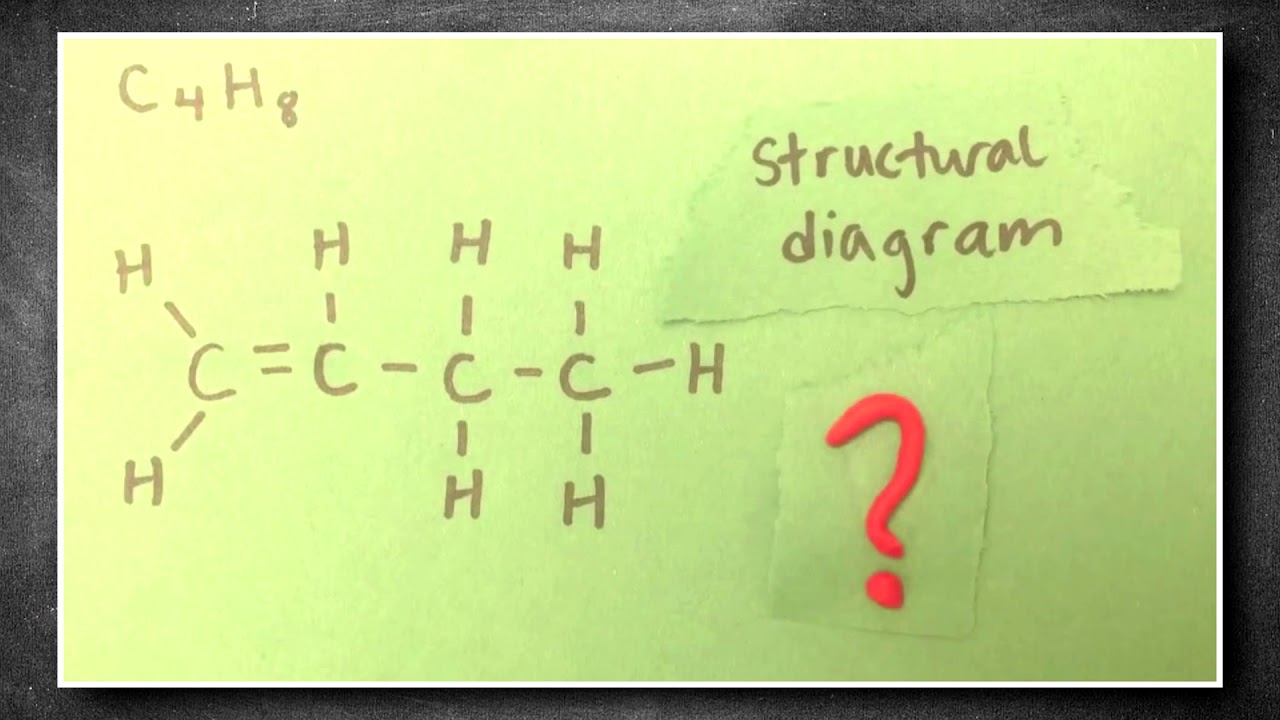 C4H8
Structural
diagram
H H H H
C = C - C - C - H
H H H
?